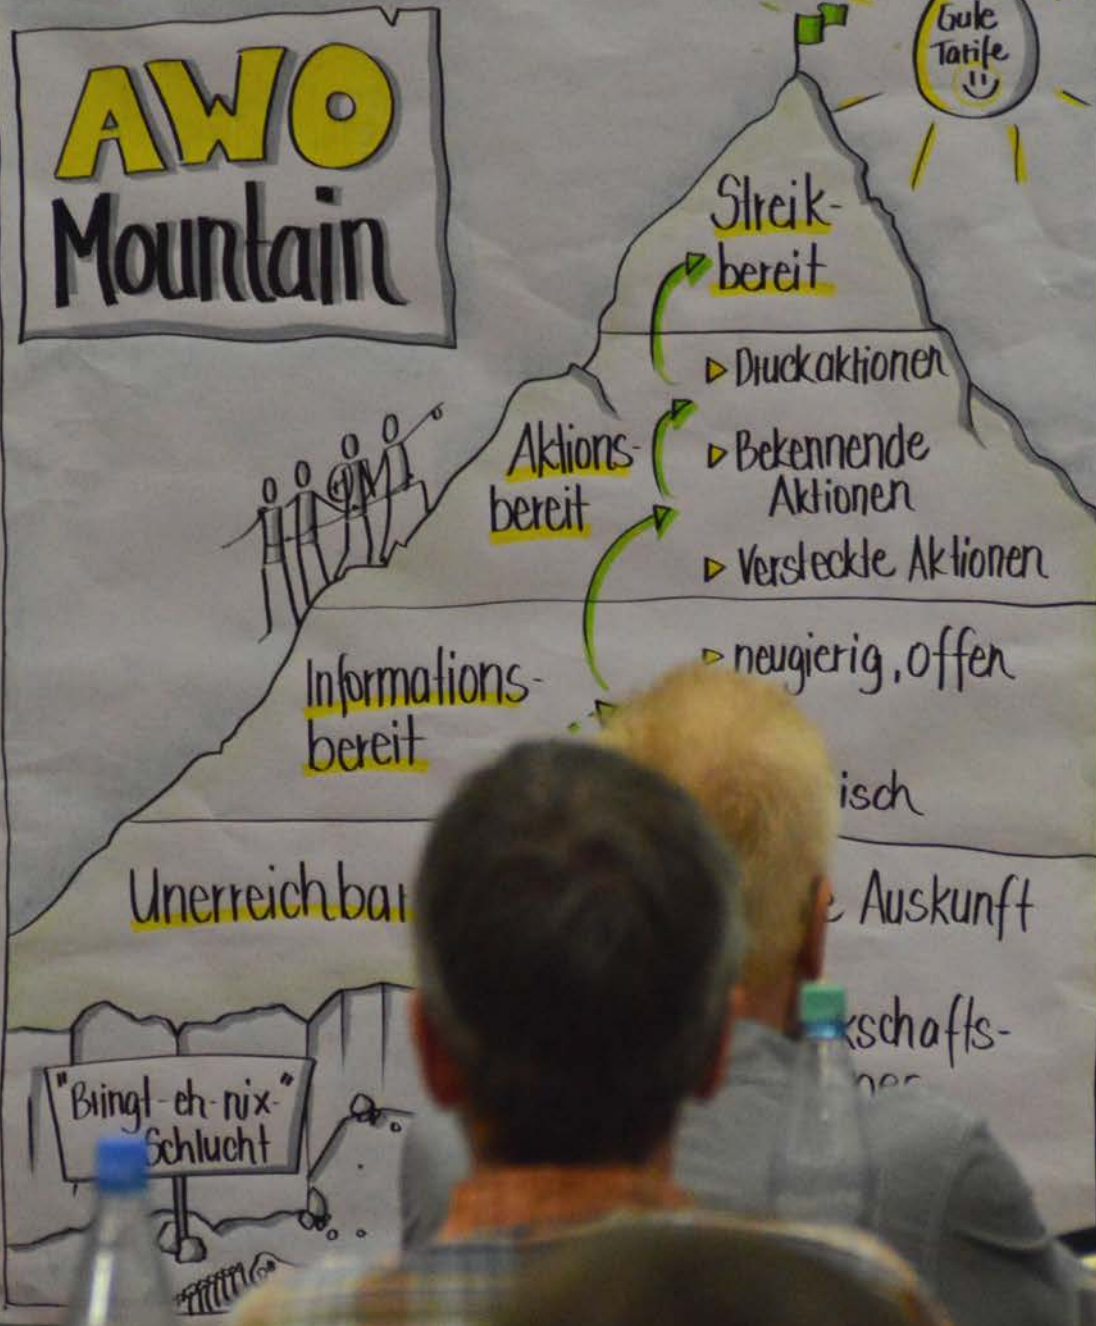 AWO
Mountain
Gute
Tarife
Streik-
bereit
▷ Druckaktionen
Aktions-
bereit
▷ Bekennende
Aktionen
▷ Versteckte Aktionen
Informations-
bereit
▷ neugierig, offen
isch
Unerreichbar
Auskunft
kschafts-
"Bringt-eh-nix-"
Schlucht